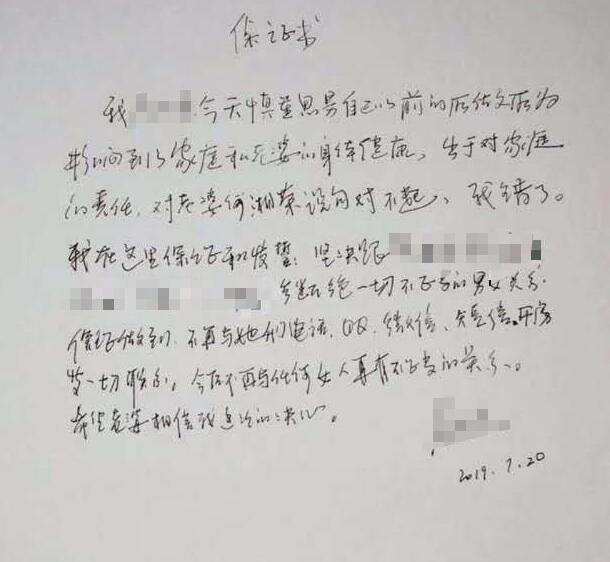 保证书
我 今天慎重思易自己以前的所做所为
影响到了家庭和老婆的身体健康、出于对家庭
的责任,对老婆何湘 说句对不起、我错了。
我在这里保证和发誓:坚决跟
断绝一切不正当的男女关系.
保证做到,不再与她们电话、QQ、微信、短信、开房
等一切联系,今后不再与任何女人再有不正当的关系、
希望老婆相信我这次的决心。
2019.7.20